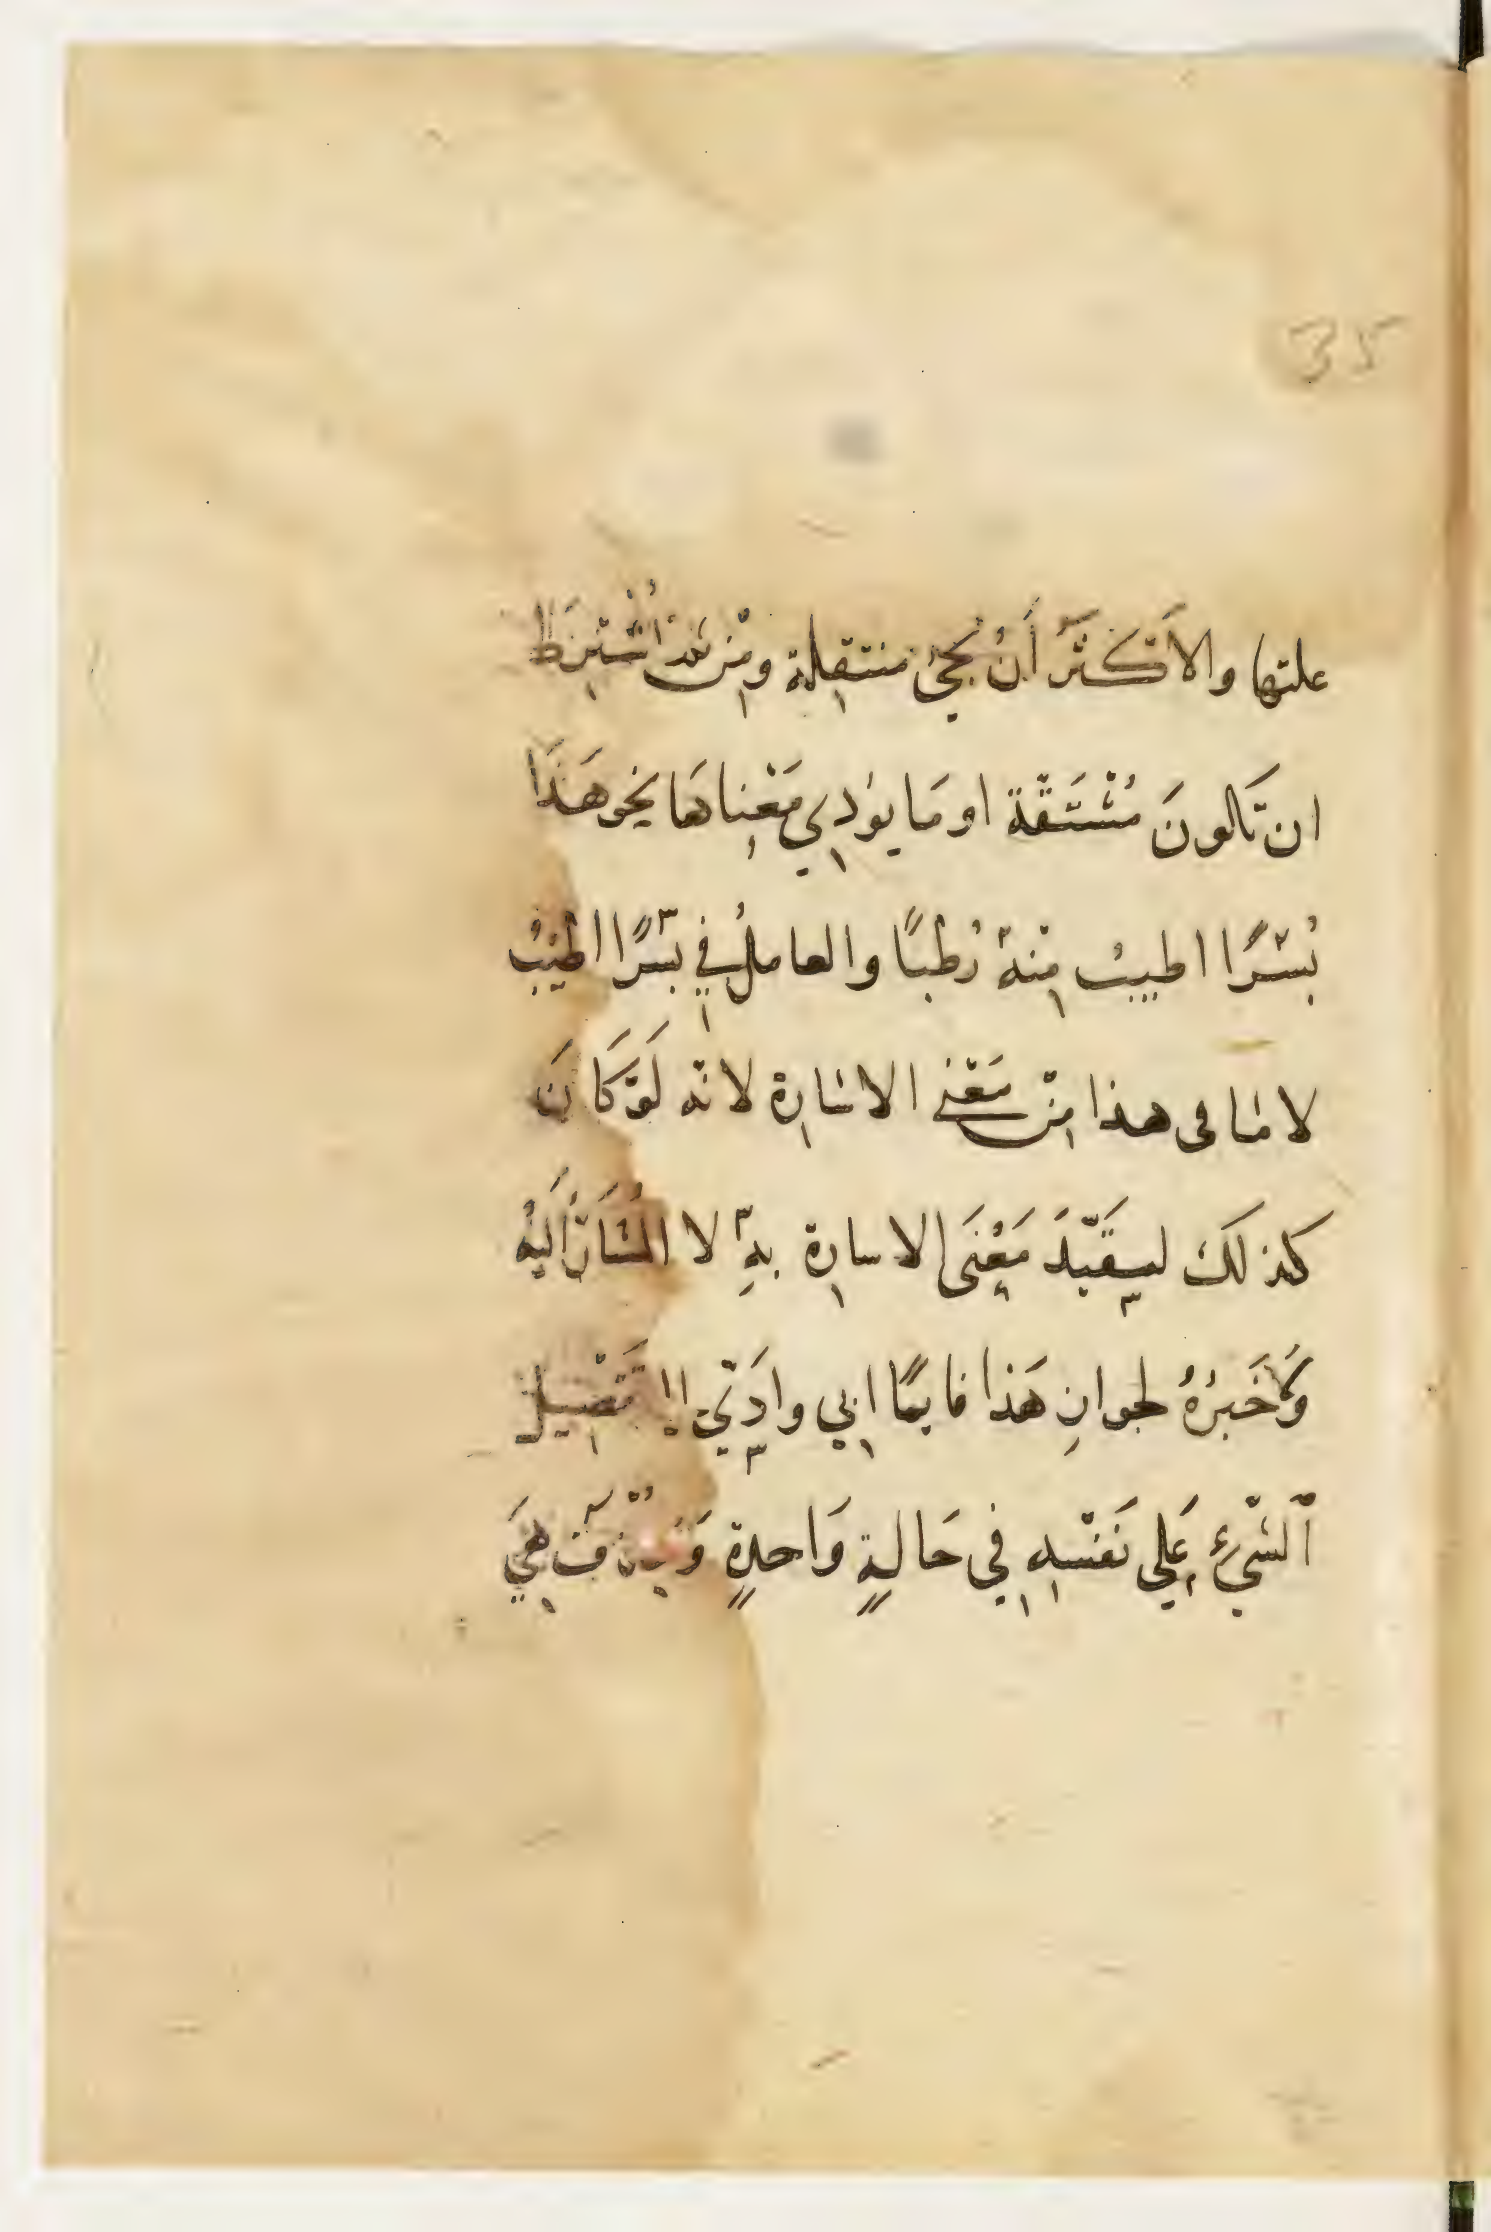 علتها والأَكْثَرُ أَنْ يجئ منتقِلة ومِنْ ثمَّ اشْتُرِطَ
ان تكونَ مُشْتَقَّة او مَا يؤدِي مَعْناهَا نحو هَذَا
بُسْرًا اطيبُ مِنْهُ رُطبًا والعاملُ فِي بُسْرًا اطيَبُ
لا مَا فى هذا مِنْ مَعْنى الاشارِة لانّه لَوْ كَانَ
كذلكَ ليقيّدَ مَعْنَى الاسارِة بهِ لا المُشَارُ اليْه
وَخَبرُهُ لجوازِ هَذا قايمًا ابِي وادّي الى تَفْضِيل
الشّيْءِ عَلِي نَفْسِهِ فِي حَالةٍ وَاحدةٍ هِيَ
35